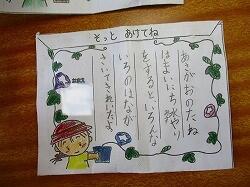 そっと あけてね
あさがおのたね
はまいにち水やり
をするといろんな
いろのはなが
さいてきれいだよ。